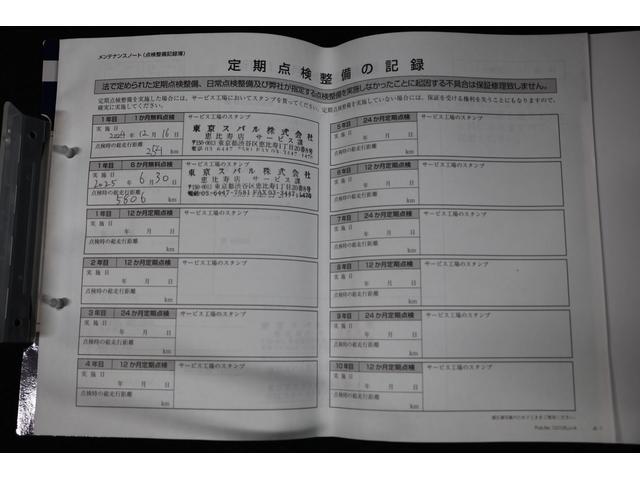 メンテナンスノート(点検整備記録簿)
定期点検整備の記録
法で定められた定期点検整備、日常点検整備及び弊社が指定する点検整備を実施しなかったことに起因する不具合は保証修理致しません。
定期点検整備を実施した場合には、サービス工場においてスタンプを貰ってください。定期点検整備を実施していない場合には、保証を受ける権利を失うことにもなりますので、
確実に実施してください。
1年目 1か月無料点検
実施日
2024年12月16日
点検時の総走行距離
254 km
東京スバル株式会社
恵比寿店 サービス課
〒150-0013 東京都渋谷区恵比寿1丁目20番8号
1年目 6か月無料点検
実施日
2025年6月30日
点検時の総走行距離
5806 km
東京スバル株式会社
恵比寿店 サービス課
〒150-0013 東京都渋谷区恵比寿1丁目20番8号
電話03-6447-7581 FAX03-3447-1420
1年目 12か月定期点検
サービス工場のスタンプ
実施日
年 月 日
点検時の総走行距離
km
2年目 12か月定期点検
サービス工場のスタンプ
実施日
年 月 日
点検時の総走行距離
km
3年目 24か月定期点検
サービス工場のスタンプ
実施日
年 月 日
点検時の総走行距離
km
4年目 12か月定期点検
サービス工場のスタンプ
実施日
年 月 日
点検時の総走行距離
km
5年目 24か月定期点検
サービス工場のスタンプ
実施日
年 月 日
点検時の総走行距離
km
6年目 12か月定期点検
サービス工場のスタンプ
実施日
年 月 日
点検時の総走行距離
km
7年目 24か月定期点検
サービス工場のスタンプ
実施日
年 月 日
点検時の総走行距離
km
8年目 12か月定期点検
サービス工場のスタンプ
実施日
年 月 日
点検時の総走行距離
km
9年目 24か月定期点検
サービス工場のスタンプ
実施日
年 月 日
点検時の総走行距離
km
10年目 12か月定期点検
サービス工場のスタンプ
実施日
年 月 日
点検時の総走行距離
km